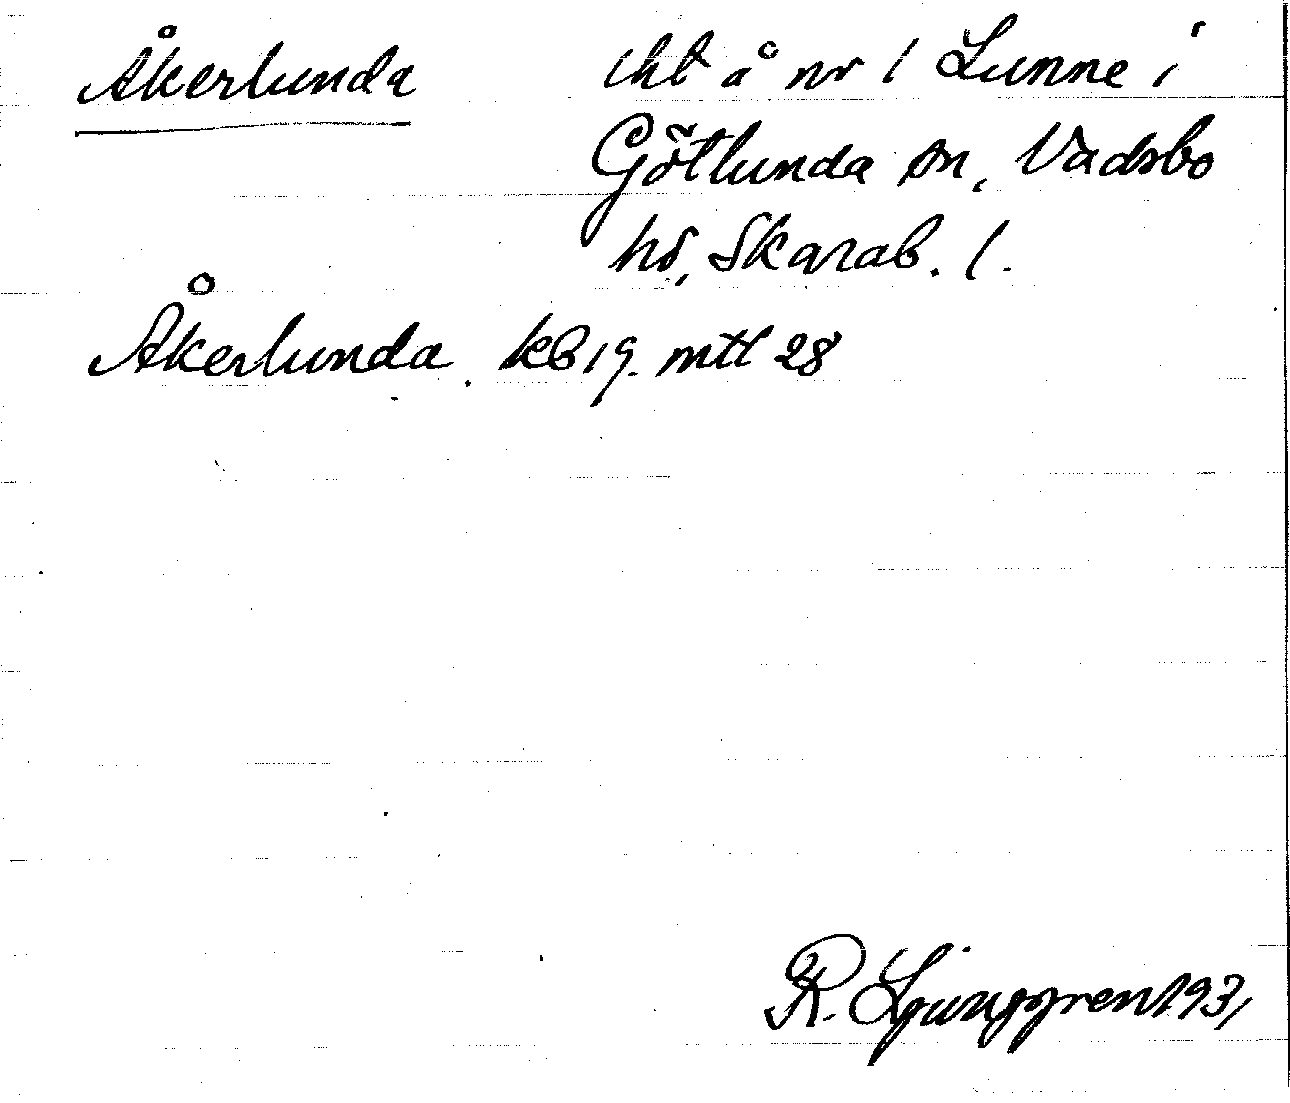 Åkerlunda lht å nr 1 Lunne i
Götlunda sn, Vadsbo
hd, Skarab. l.
Åkerlunda. kb 19. mtl 28
R. Ljunggren 1931